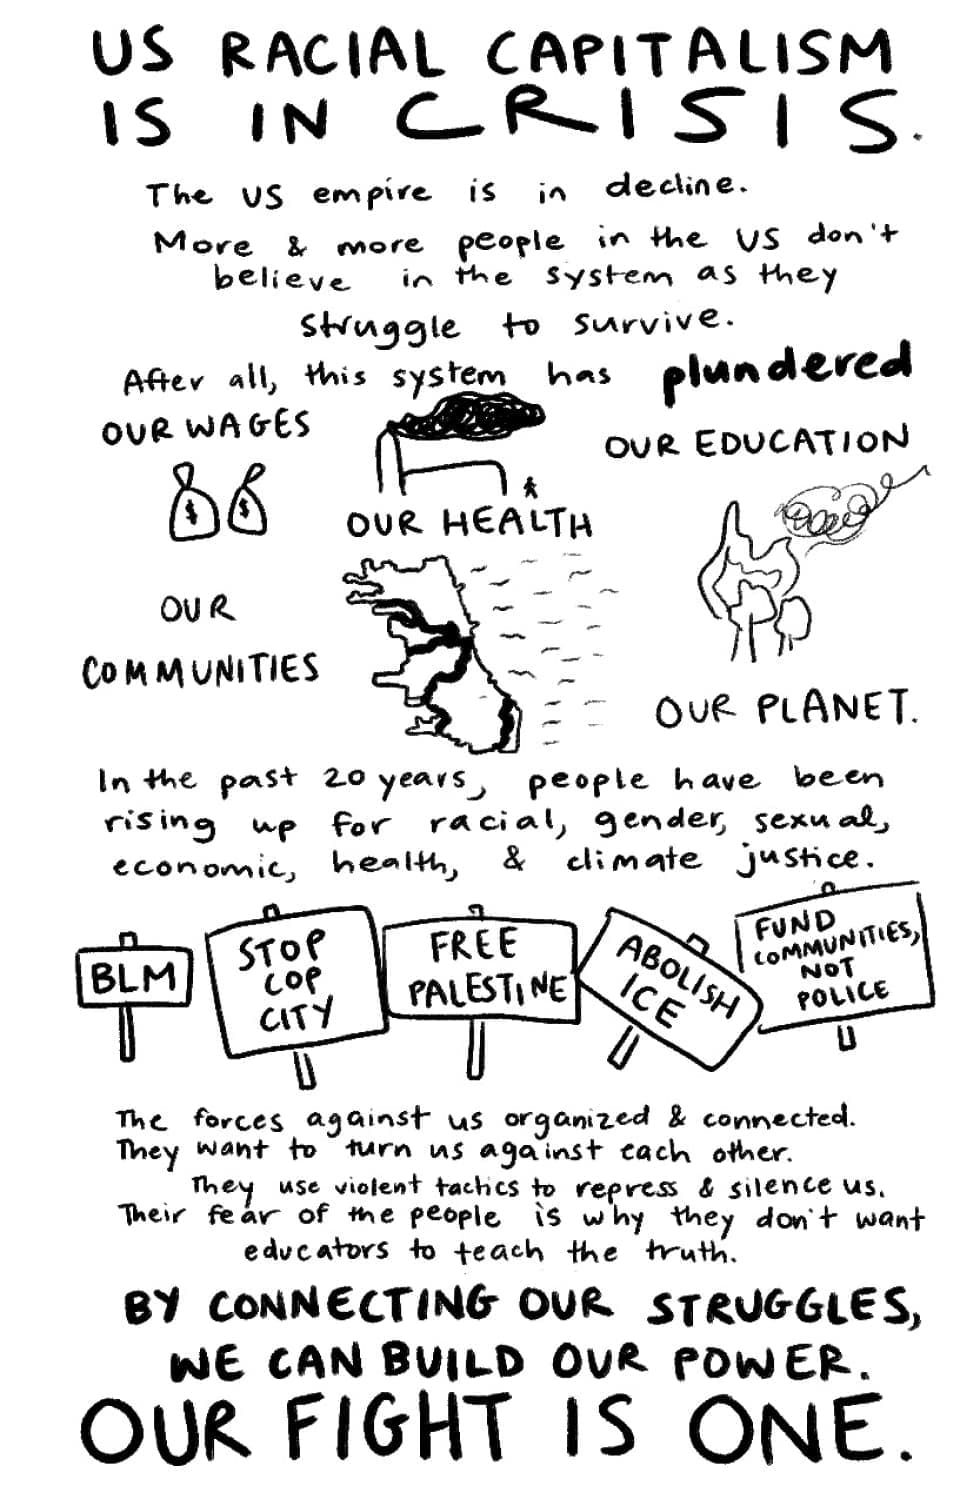 US RACIAL CAPITALISM
IS IN CRISIS.
The US empire is in decline.
More & more people in the US don't
believe in the system as they
struggle to survive.
After all, this system has plundered
OUR WAGES
OUR EDUCATION
$ $
OUR HEALTH
OUR
COMMUNITIES
OUR PLANET.
In the past 20 years, people have been
rising up for racial, gender, sexual,
economic, health, & climate justice.
BLM
STOP
COP
CITY
FREE
PALESTINE
ABOLISH
ICE
FUND
COMMUNITIES,
NOT
POLICE
The forces against us organized & connected.
They want to turn us against each other.
They use violent tactics to repress & silence us.
Their fear of the people is why they don't want
educators to teach the truth.
BY CONNECTING OUR STRUGGLES,
WE CAN BUILD OUR POWER.
OUR FIGHT IS ONE.